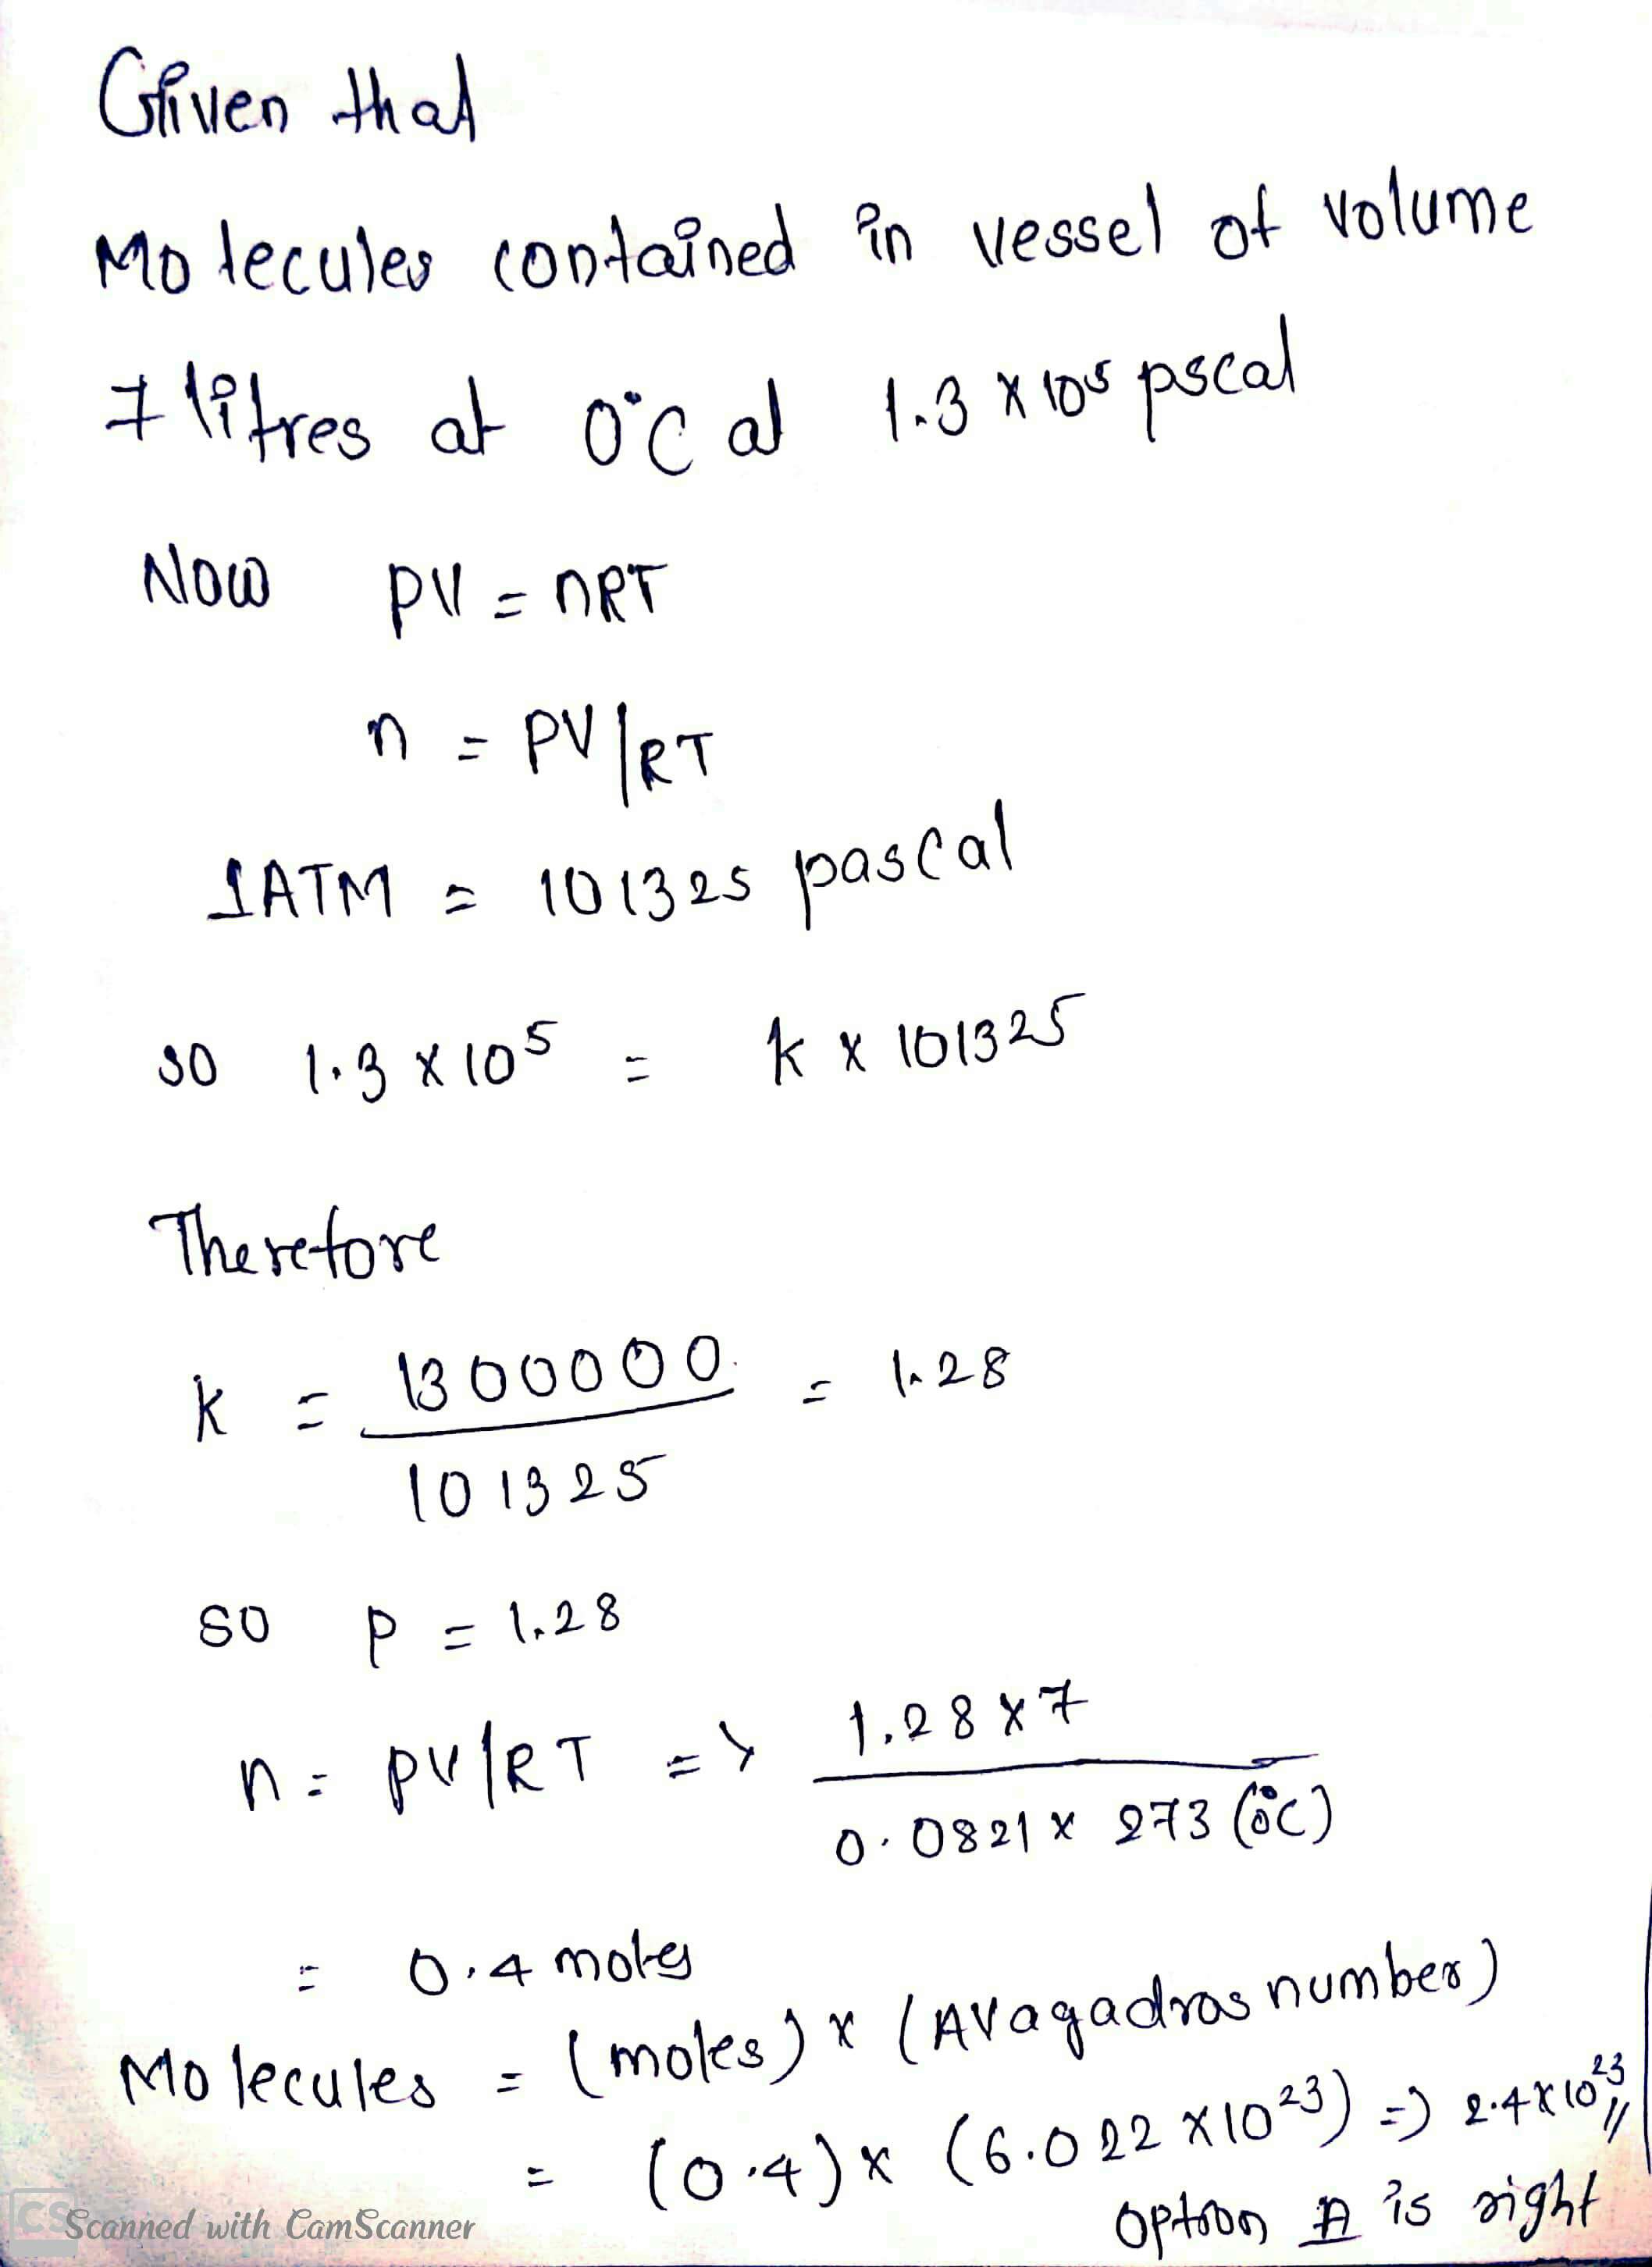 Given that
Molecules contained in vessel of volume
7 litres at 0°C at 1.3 x 10⁵ pscal
Now PV = nRT
n = PV/RT
1ATM = 101325 pascal
so 1.3 x 10⁵ = k x 101325
Therefore
k = 1300000 / 101325 = 1.28
so P = 1.28
n = PV/RT => 1.28 x 7 / 0.0821 x 273 (0°C)
= 0.4 moles
Molecules = (moles) x (Avagadros number)
= (0.4) x (6.022 x 10²³) => 2.4 x 10²³//
option A is right
CS Scanned with CamScanner